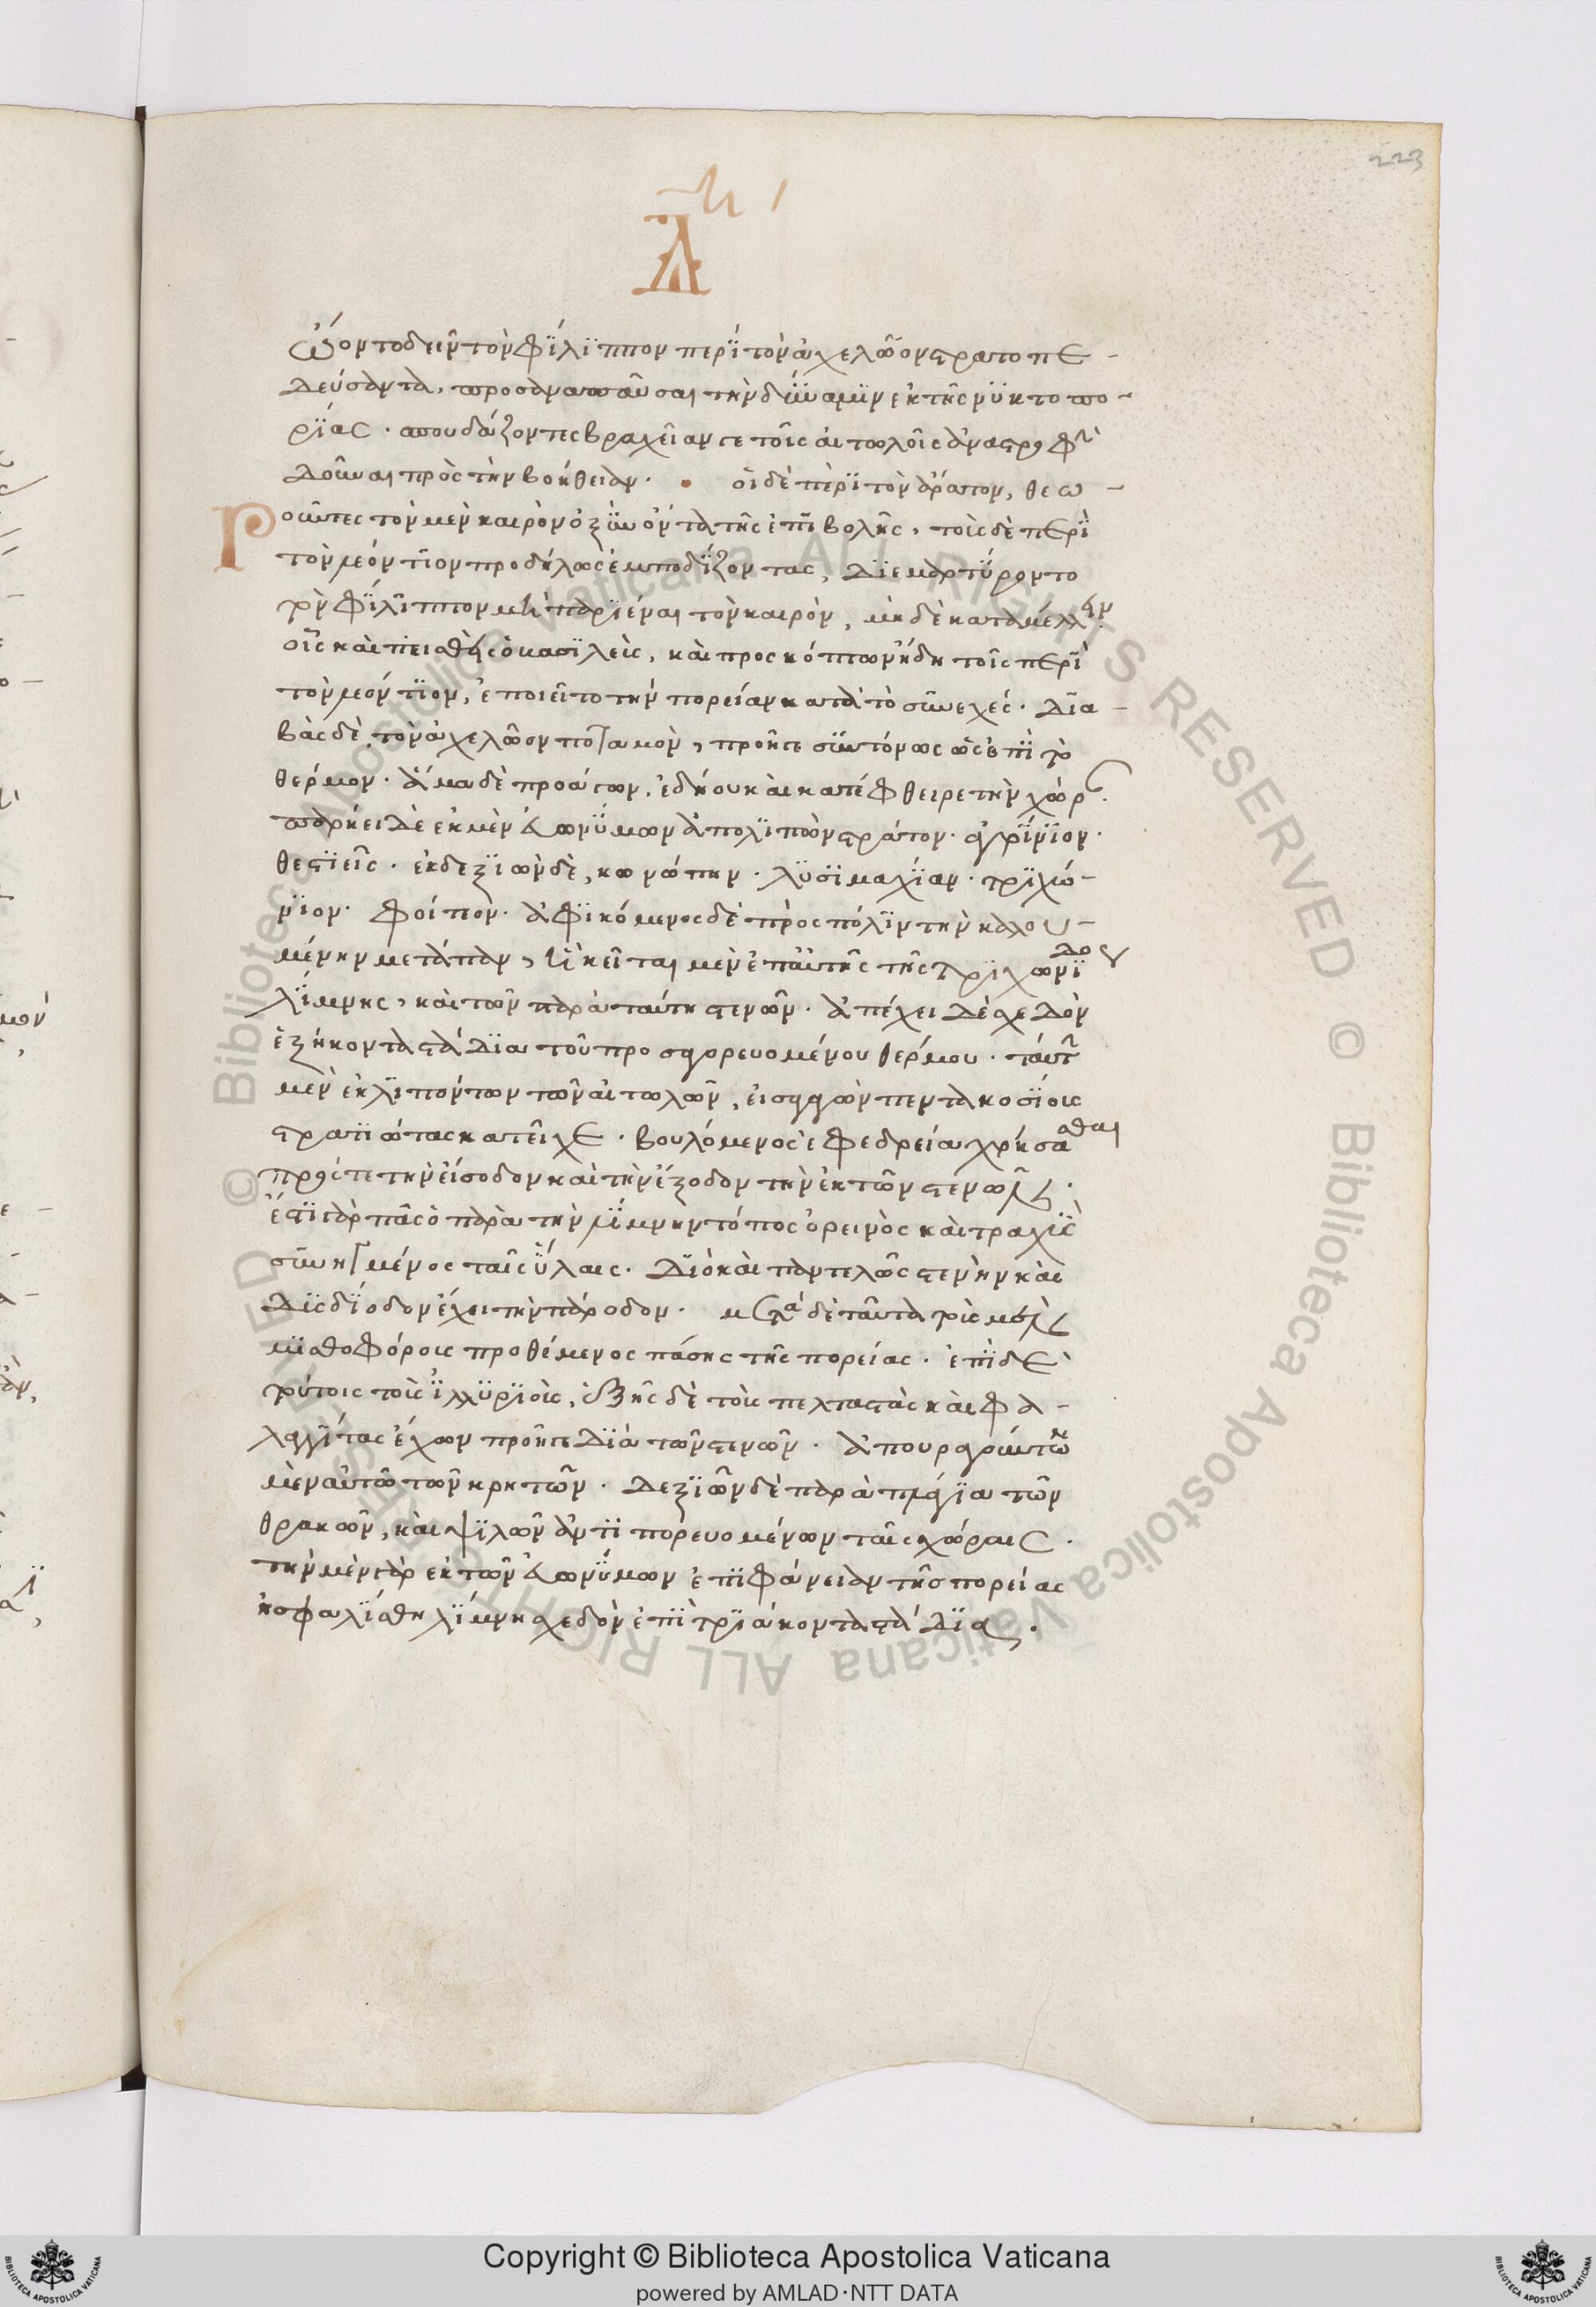 223
ὤοντο δεῖν τὸν φίλιππον περὶ τὸν ἀχελῶον στρατοπε
δεύσαντα, προσαναπαῦσαι τὴν δύναμιν ἐκ τῆς νυκτοπο
ρίας · σπουδάζοντες βραχεῖαν τε τοῖς αἰτωλοῖς ἀναστροφὴν
δοῦναι πρὸς τὴν βοήθειαν · οἱ δὲ περὶ τὸν ἄρατον, θεω
ροῦντες τὸν μὲν καιρὸν ὀξὺν ὄντα τῆς ἐπιβολῆς, τοὺς δὲ περὶ
τὸν λεόντιον προδήλως ἐμποδίζοντας, διεμαρτύροντο
τὸν φίλιππον μὴ παριέναι τὸν καιρὸν, μηδὲ καταμέλλειν
οἷς καὶ πεισθεὶς ὁ βασιλεὺς, καὶ προσκόπτων ἤδη τοῖς περὶ
τὸν λεόντιον, ἐποιεῖτο τὴν πορείαν κατὰ τὸ συνεχές · δια
βὰς δὲ τὸν ἀχελῶον ποταμὸν, προῆγε συντόνως ὡς ἐπὶ τὸ
θέρμον · ἅμα δὲ προάγων, ἐδήου καὶ κατέφθειρε τὴν χώραν ·
παρῄει δὲ ἐκ μὲν εὐωνύμων ἀπολιπὼν στράτον · ἀγρίνιον ·
θεστιεῖς · ἐκ δεξιῶν δὲ, κωνώπην · λυσιμαχίαν · τριχώ
νιον · φοίτεον · ἀφικόμενος δὲ πρὸς πόλιν τὴν καλου
μένην μετάπαν, ἣ κεῖται μὲν ἐπ' αὐτῆς τῆς τριχωνίδος
λίμνης, καὶ τῶν παρὰ ταύτῃ στενῶν · ἀπέχει δὲ σχεδὸν
ἑξήκοντα στάδια τοῦ προσαγορευομένου θέρμου · ταύτην
μὲν ἐκλιπόντων τῶν αἰτωλῶν, εἰσαγαγὼν πεντακοσίους
στρατιώτας κατεῖχε · βουλόμενος ἐφεδρείᾳ χρήσασθαι
πρός τε τὴν εἴσοδον καὶ τὴν ἔξοδον τὴν ἐκ τῶν στενῶν ·
ἔστι γὰρ πᾶς ὁ παρὰ τὴν λίμνην τόπος ὀρεινὸς καὶ τραχὺς
συνηγμένος ταῖς ὕλαις · διὸ καὶ παντελῶς στενὴν καὶ
δυσδίοδον ἔχει τὴν πάροδον · μετὰ δὲ ταῦτα τοὺς μὲν
μισθοφόρους προθέμενος πάσης τῆς πορείας · ἐπὶ δὲ
τούτοις τοὺς ἰλλυριοὺς, ἑξῆς δὲ τοὺς πελταστὰς καὶ φα
λαγγίτας ἔχων προῆγε διὰ τῶν στενῶν · ἀπουραγούντων
μὲν αὐτῷ τῶν κρητῶν · δεξιῶν δὲ παρὰ πλάγια τῶν
θρᾳκῶν, καὶ ψιλῶν ἀντιπορευομένων ταῖς χώραις ·
τὴν μὲν γὰρ ἐκ τῶν εὐωνύμων ἐπιφάνειαν τῆς πορείας
ἠσφαλίσθη λίμνη σχεδὸν ἐπὶ τριάκοντα στάδια ·
© Biblioteca Apostolica Vaticana ALL RIGHTS RESERVED © Biblioteca Apostolica Vaticana ALL RIGHTS RESERVED
Copyright © Biblioteca Apostolica Vaticana
powered by AMLAD·NTT DATA